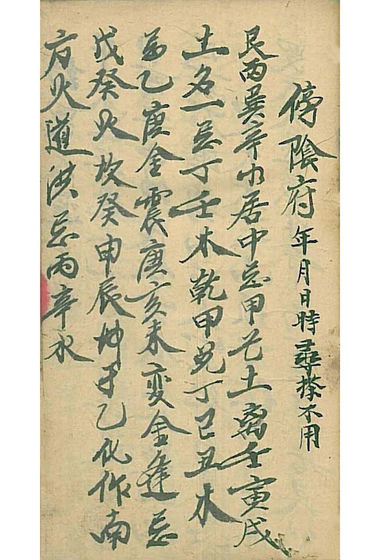 停陰府年月日時尋擇不用
艮丙巽辛巾居中忌甲己土离壬寅戌
土名一忌丁壬木乾甲兌丁巳丑木
忌乙庚金震庚亥未变金逢忌
戊癸火坎癸申辰坤乙化作南
方火道洪忌丙辛水